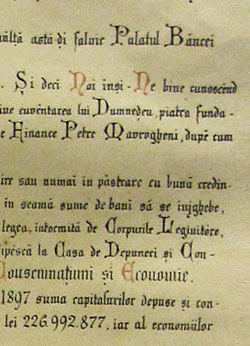 naltă astă-di falnic Palatul Băncei
. Și deci Noi inși-Ne bine cunoscend
ine cuvêntarea lui Dumnedeu, piatra funda-
e Finance Petre Mavrogheni, dupĕ cum
ire sau numai in păstrare cu bună credin-
in seamă sume de bani să se injghebe,
legea, intocmită de Corpurile Legiuitóre,
ipésca la Casa de Depuneri si Con-
Consemnațiuni și Economie.
1897 suma capitalurilor depuse și con-
lei 226.992.877, iar al economiilor